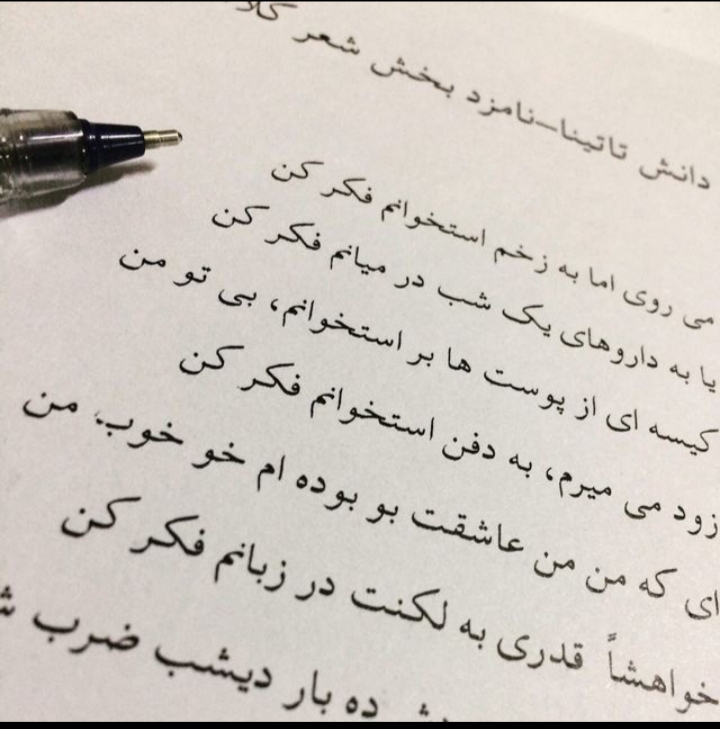 دانش تاتینا-نامزد بخش شعر
می روی اما به زخم استخوانم فکر کن
یا به داروهای یک شب در میانم فکر کن
کیسه ای از پوست ها بر استخوانم، بی تو من
زود می میرم، به دفن استخوانم فکر کن
ای که من من عاشقت بو بوده ام خو خوب من
خواهشاً قدری به لکنت در زبانم فکر کن
ده بار دیشب ضرب